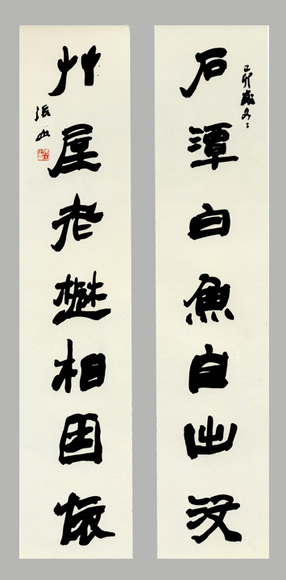 卯歲冬
石潭白魚自出没
艸屋老相因依
張